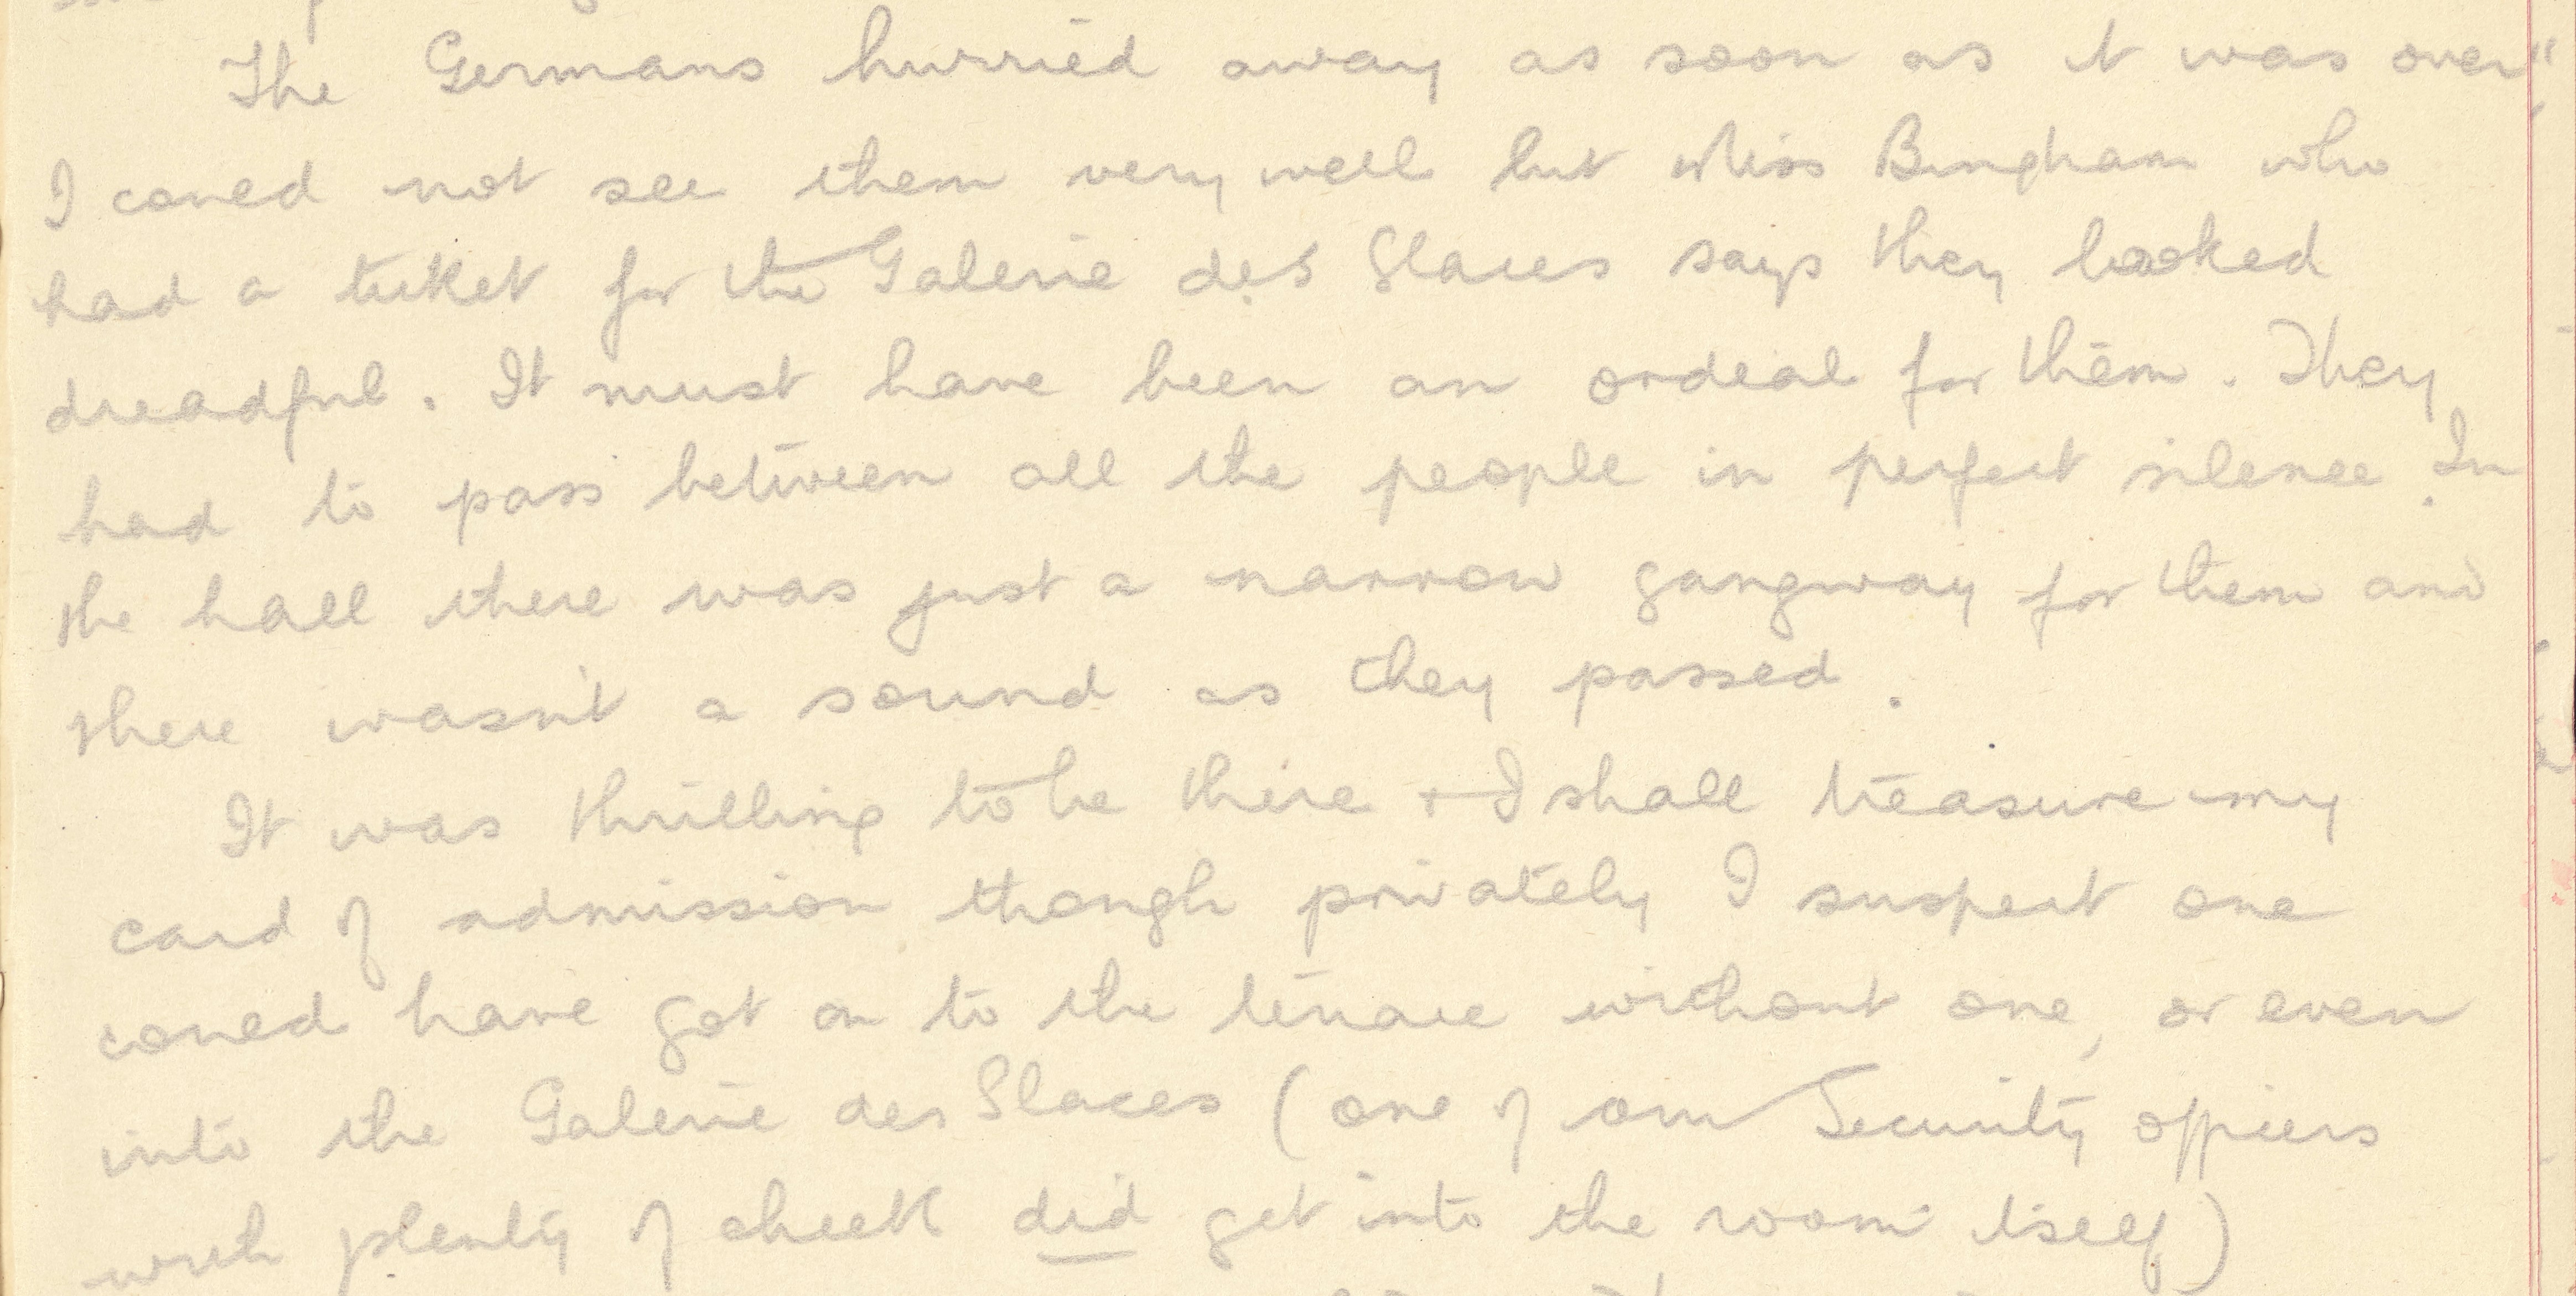 The Germans hurried away as soon as it was over"
I could not see them very well but Miss Bingham who
had a ticket for the Galerie des Glaces says they looked
dreadful. It must have been an ordeal for them. They
had to pass between all the people in perfect silence. In
the hall there was just a narrow gangway for them and
there wasn't a sound as they passed.
It was thrilling to be there + I shall treasure my
card of admission though privately I suspect one
could have got on to the terrace without one, or even
into the Galerie des Glaces (one of our Security officers
with plenty of cheek did get into the room itself)